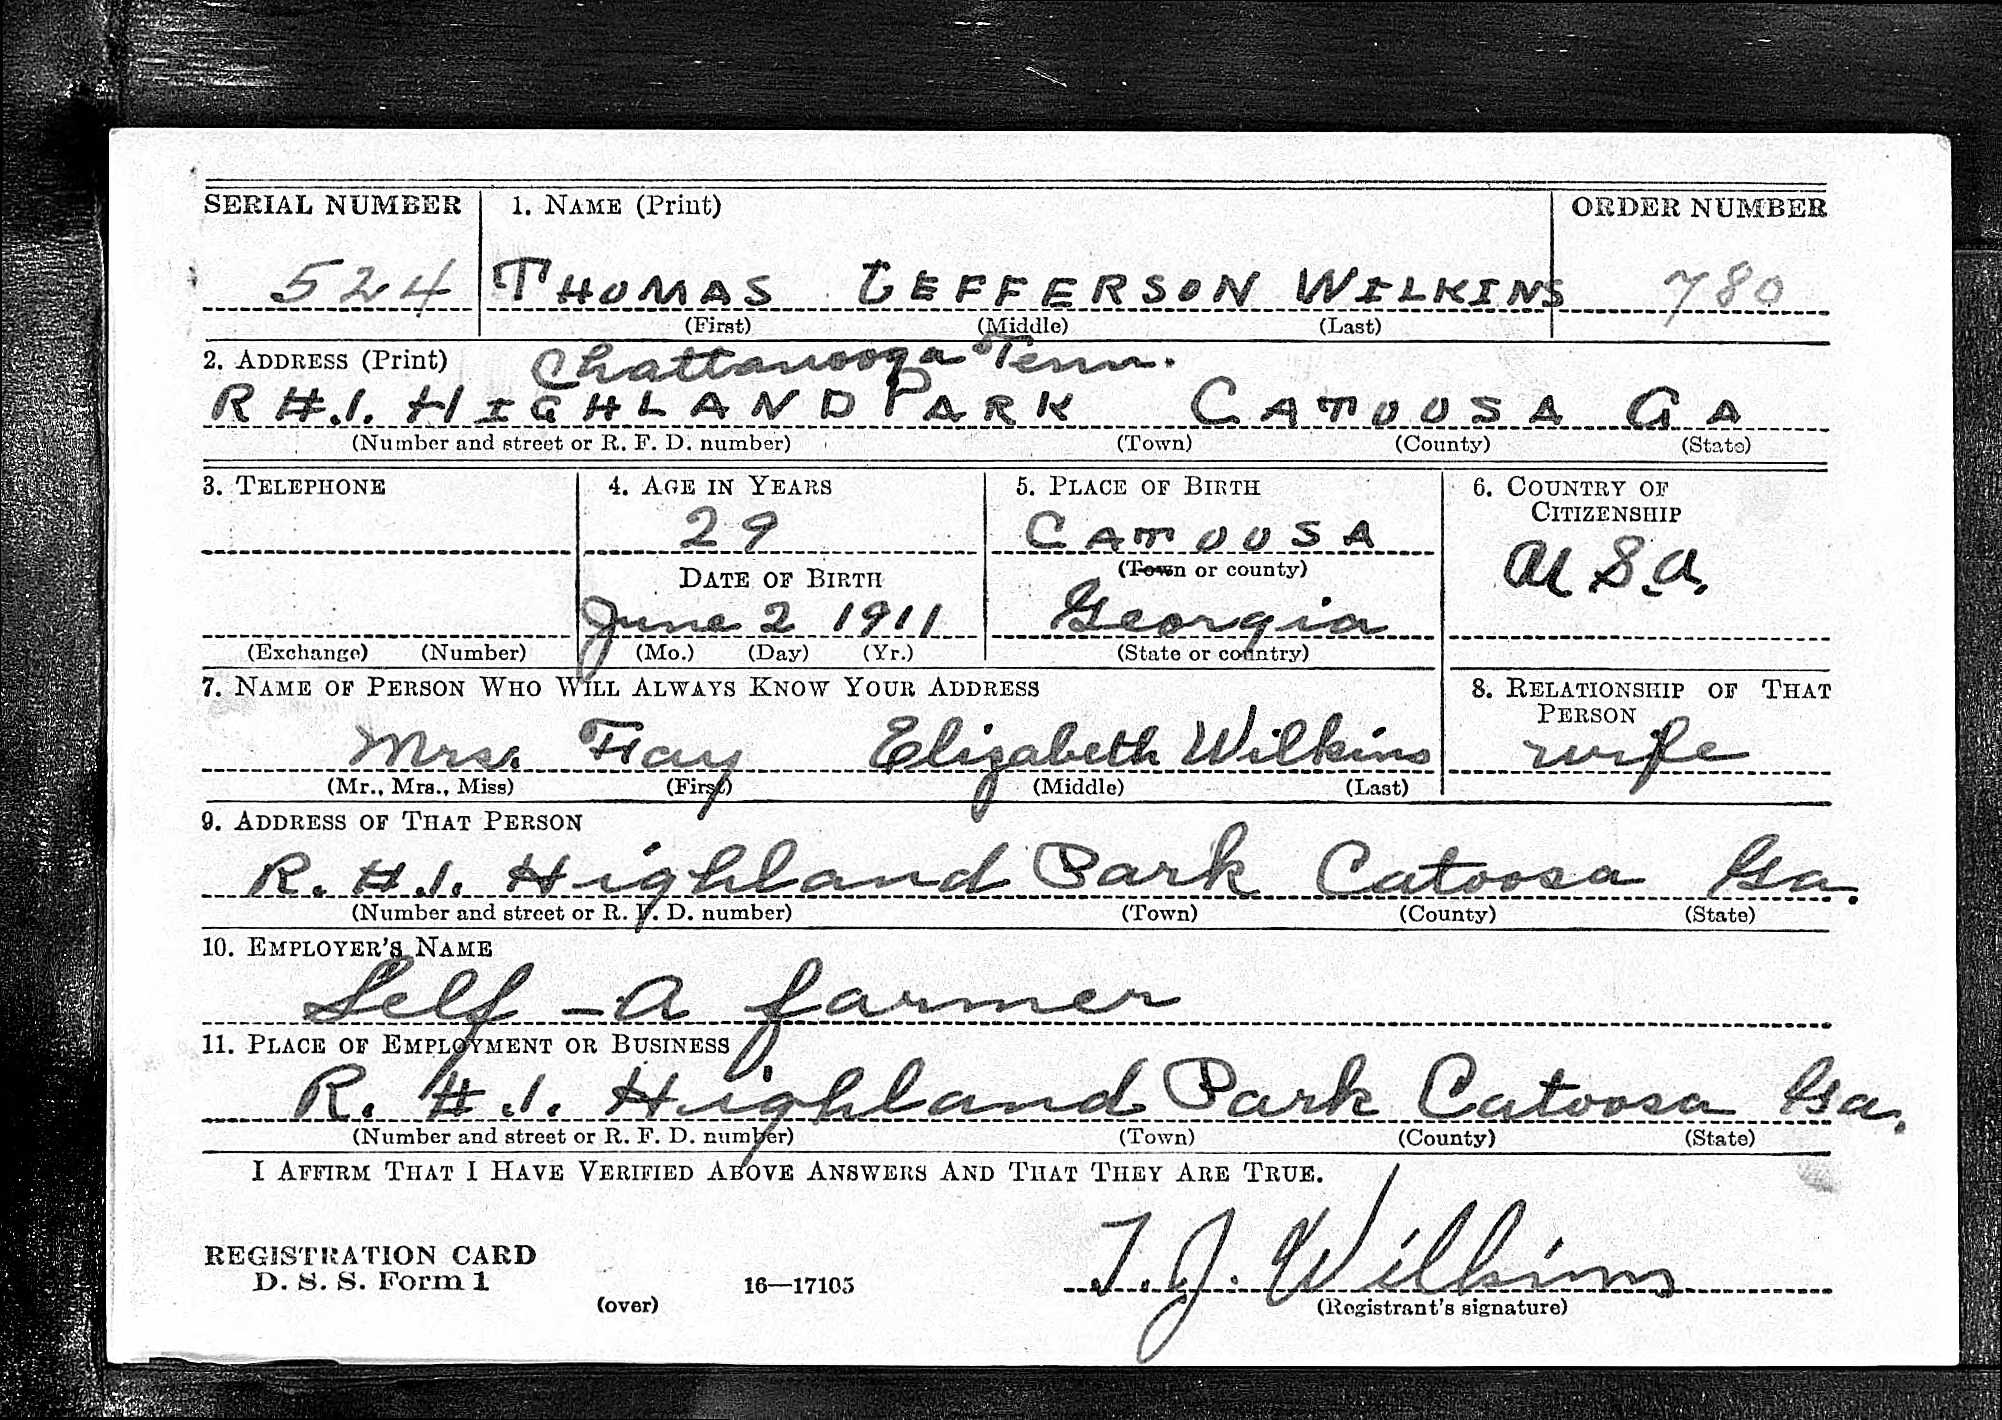 SERIAL NUMBER 1. NAME (Print) ORDER NUMBER
524 THOMAS JEFFERSON WILKINS 780
(First) (Middle) (Last)
2. ADDRESS (Print) Chattanooga Tenn.
R #.1. HIGHLAND PARK CATOOSA GA
(Number and street or R. F. D. number) (Town) (County) (State)
3. TELEPHONE 4. AGE IN YEARS 5. PLACE OF BIRTH 6. COUNTRY OF
CITIZENSHIP
29 CATOOSA U.S.A.
(Town or county)
DATE OF BIRTH
June 2 1911 Georgia
(Exchange) (Number) (Mo.) (Day) (Yr.) (State or country)
7. NAME OF PERSON WHO WILL ALWAYS KNOW YOUR ADDRESS 8. RELATIONSHIP OF THAT
PERSON
Mrs. Fay Elizabeth Wilkins wife
(Mr., Mrs., Miss) (First) (Middle) (Last)
9. ADDRESS OF THAT PERSON
R. #.1. Highland Park Catoosa Ga.
(Number and street or R. F. D. number) (Town) (County) (State)
10. EMPLOYER'S NAME
Self - A farmer
11. PLACE OF EMPLOYMENT OR BUSINESS
R. #.1. Highland Park Catoosa Ga.
(Number and street or R. F. D. number) (Town) (County) (State)
I AFFIRM THAT I HAVE VERIFIED ABOVE ANSWERS AND THAT THEY ARE TRUE.
REGISTRATION CARD
D. S. S. Form 1 16—17105 T. J. Wilkins
(over) (Registrant's signature)